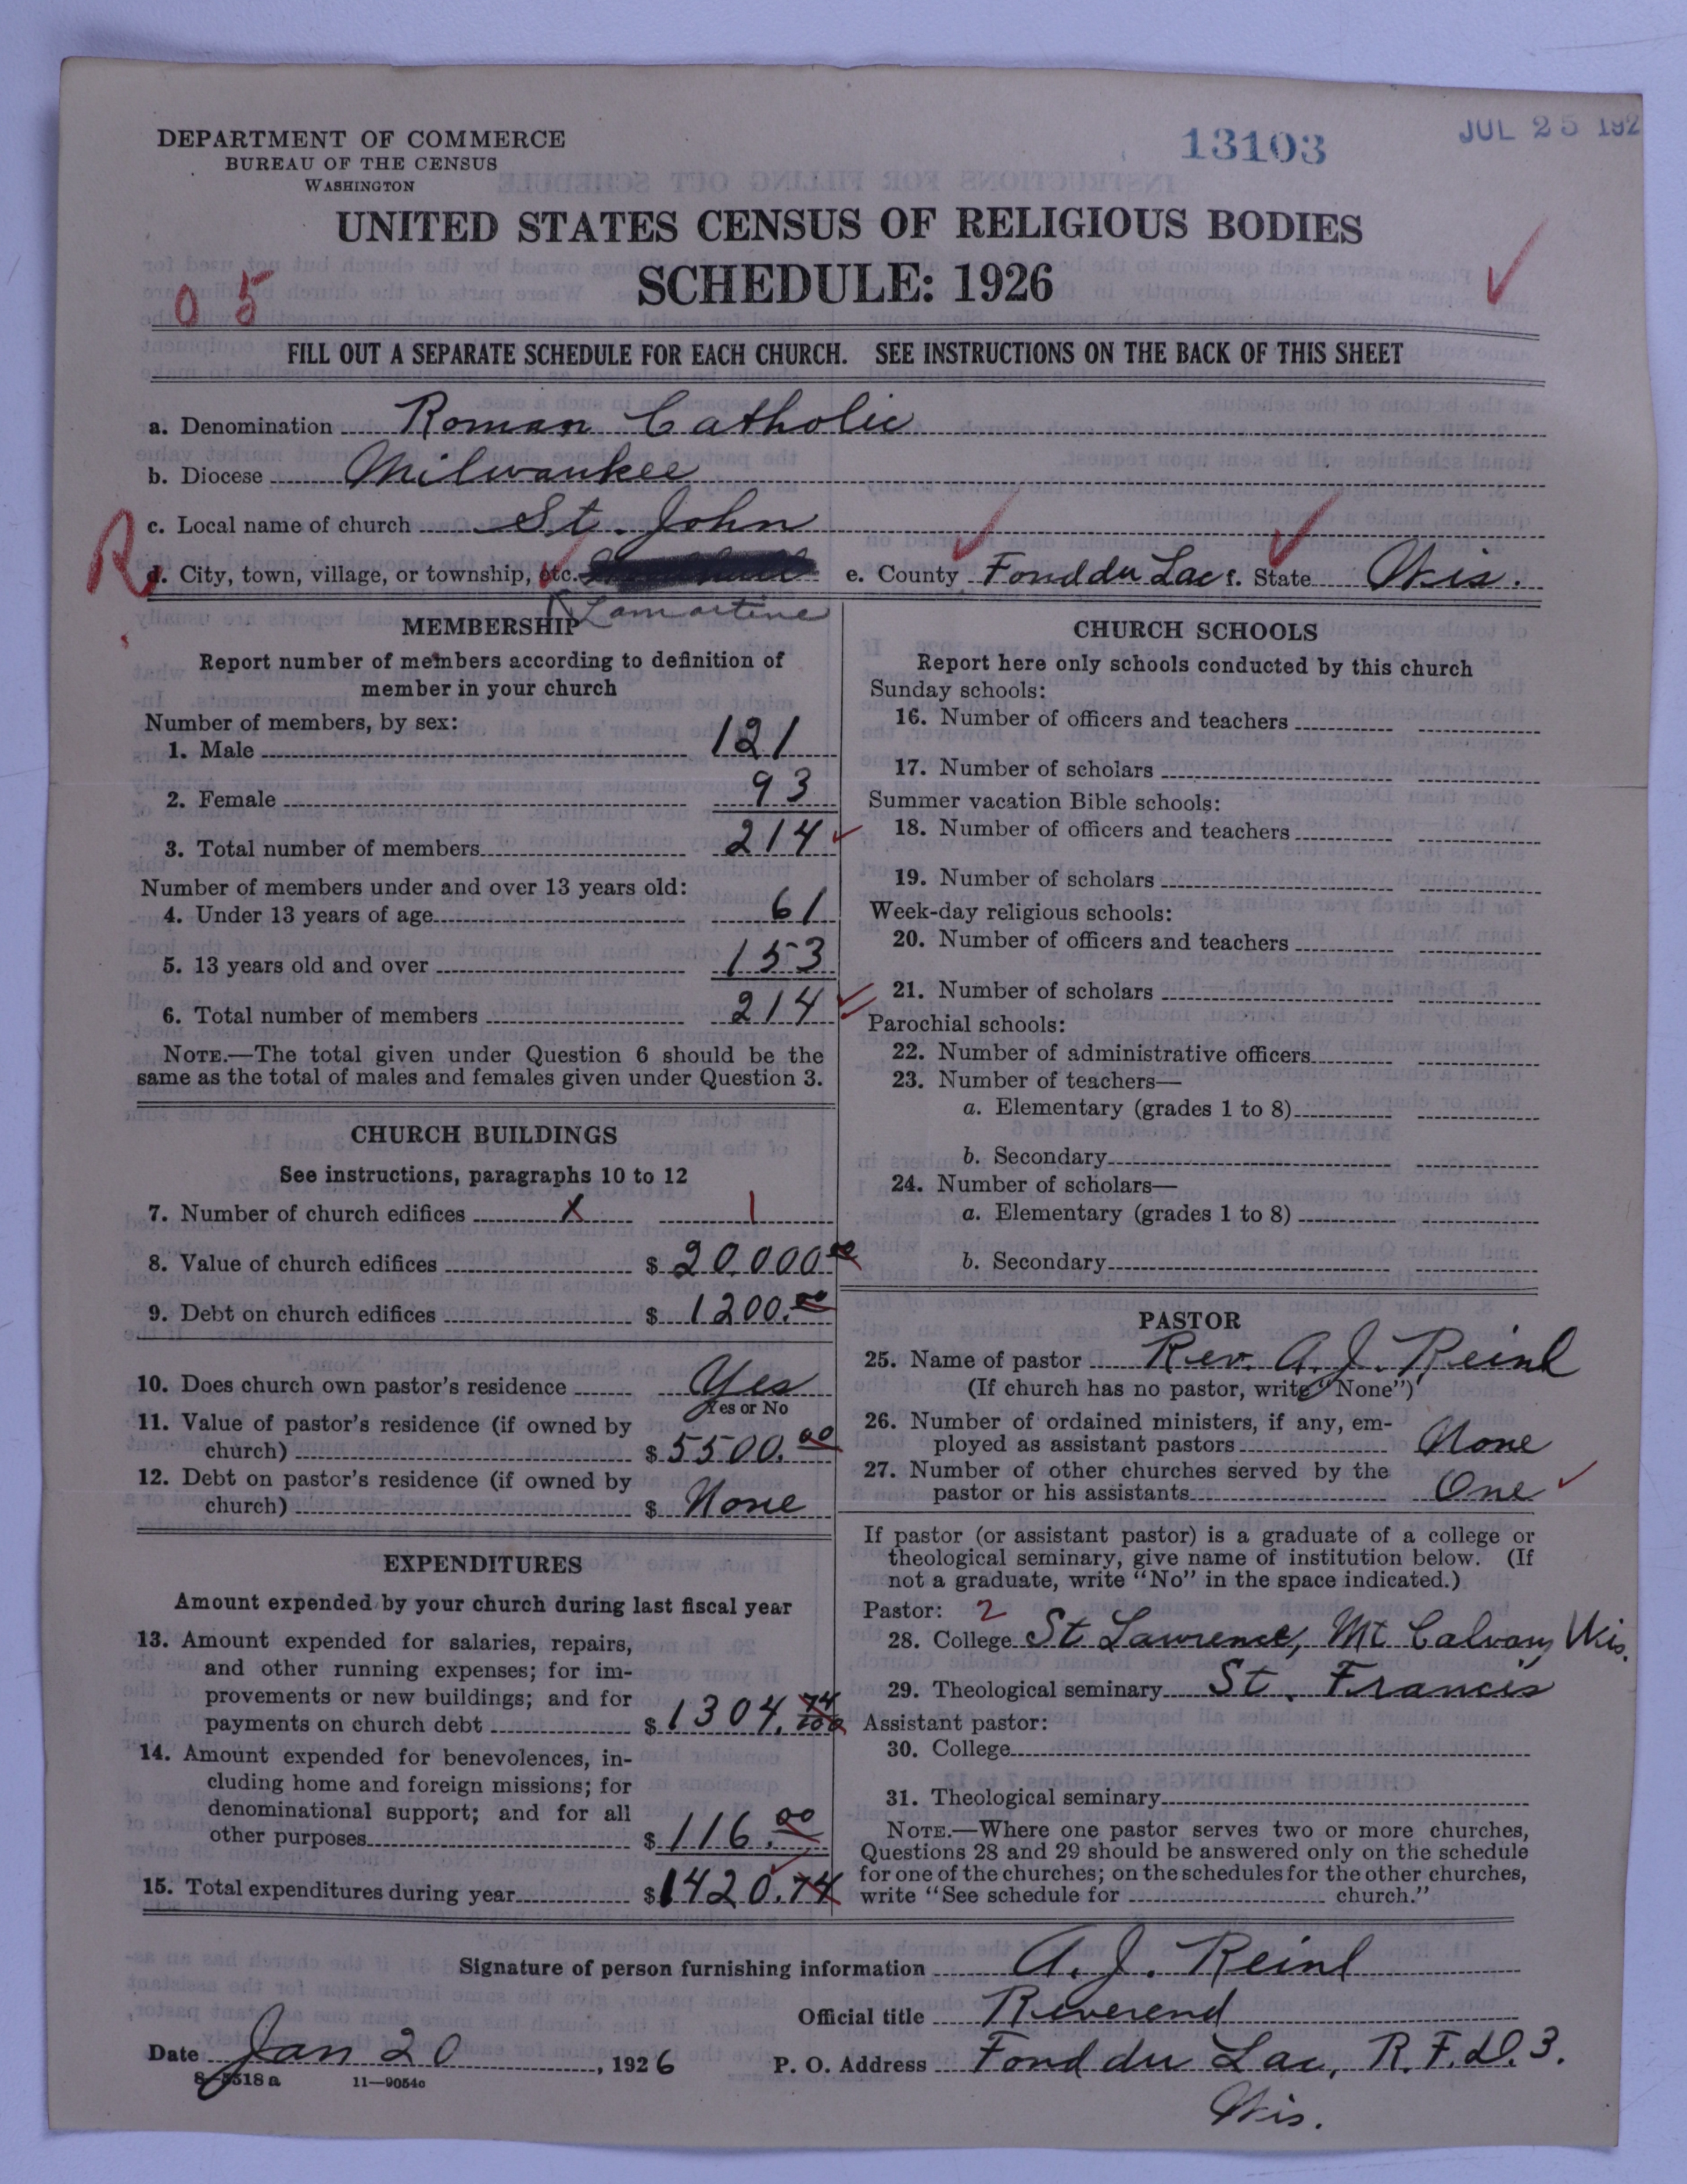 DEPARTMENT OF COMMERCE
BUREAU OF THE CENSUS
WASHINGTON
13103
JUL 25 192
UNITED STATES CENSUS OF RELIGIOUS BODIES
SCHEDULE: 1926
0 5
FILL OUT A SEPARATE SCHEDULE FOR EACH CHURCH. SEE INSTRUCTIONS ON THE BACK OF THIS SHEET
a. Denomination Roman Catholic
b. Diocese Milwaukee
c. Local name of church St. John
R
d. City, town, village, or township, etc. e. County Fond du Lac f. State Wis.
Lamartine
MEMBERSHIP
Report number of members according to definition of
member in your church
Number of members, by sex:
1. Male 121
2. Female 93
3. Total number of members 214
Number of members under and over 13 years old:
4. Under 13 years of age 61
5. 13 years old and over 153
6. Total number of members 214
NOTE.—The total given under Question 6 should be the
same as the total of males and females given under Question 3.
CHURCH BUILDINGS
See instructions, paragraphs 10 to 12
7. Number of church edifices X 1
8. Value of church edifices $ 20.000 00
9. Debt on church edifices $ 1200. 00
10. Does church own pastor's residence Yes
Yes or No
11. Value of pastor's residence (if owned by
church) $ 5500. 00
12. Debt on pastor's residence (if owned by
church) $ None
EXPENDITURES
Amount expended by your church during last fiscal year
13. Amount expended for salaries, repairs,
and other running expenses; for im-
provements or new buildings; and for
payments on church debt $ 1304. 74/100
14. Amount expended for benevolences, in-
cluding home and foreign missions; for
denominational support; and for all
other purposes $ 116. 00
15. Total expenditures during year $ 1420.74
CHURCH SCHOOLS
Report here only schools conducted by this church
Sunday schools:
16. Number of officers and teachers
17. Number of scholars
Summer vacation Bible schools:
18. Number of officers and teachers
19. Number of scholars
Week-day religious schools:
20. Number of officers and teachers
21. Number of scholars
Parochial schools:
22. Number of administrative officers
23. Number of teachers—
a. Elementary (grades 1 to 8)
b. Secondary
24. Number of scholars—
a. Elementary (grades 1 to 8)
b. Secondary
PASTOR
25. Name of pastor Rev. A. J. Reinl
(If church has no pastor, write "None")
26. Number of ordained ministers, if any, em-
ployed as assistant pastors None
27. Number of other churches served by the
pastor or his assistants One
If pastor (or assistant pastor) is a graduate of a college or
theological seminary, give name of institution below. (If
not a graduate, write "No" in the space indicated.)
Pastor: 2
28. College St Lawrence, Mt Calvary Wis.
29. Theological seminary St. Francis
Assistant pastor:
30. College
31. Theological seminary
NOTE.—Where one pastor serves two or more churches,
Questions 28 and 29 should be answered only on the schedule
for one of the churches; on the schedules for the other churches,
write "See schedule for church."
Signature of person furnishing information A. J. Reinl
Official title Reverend
Date Jan 20, 1926 P. O. Address Fond du Lac, R. F. D. 3.
Wis.
8-5318 a 11—9054c